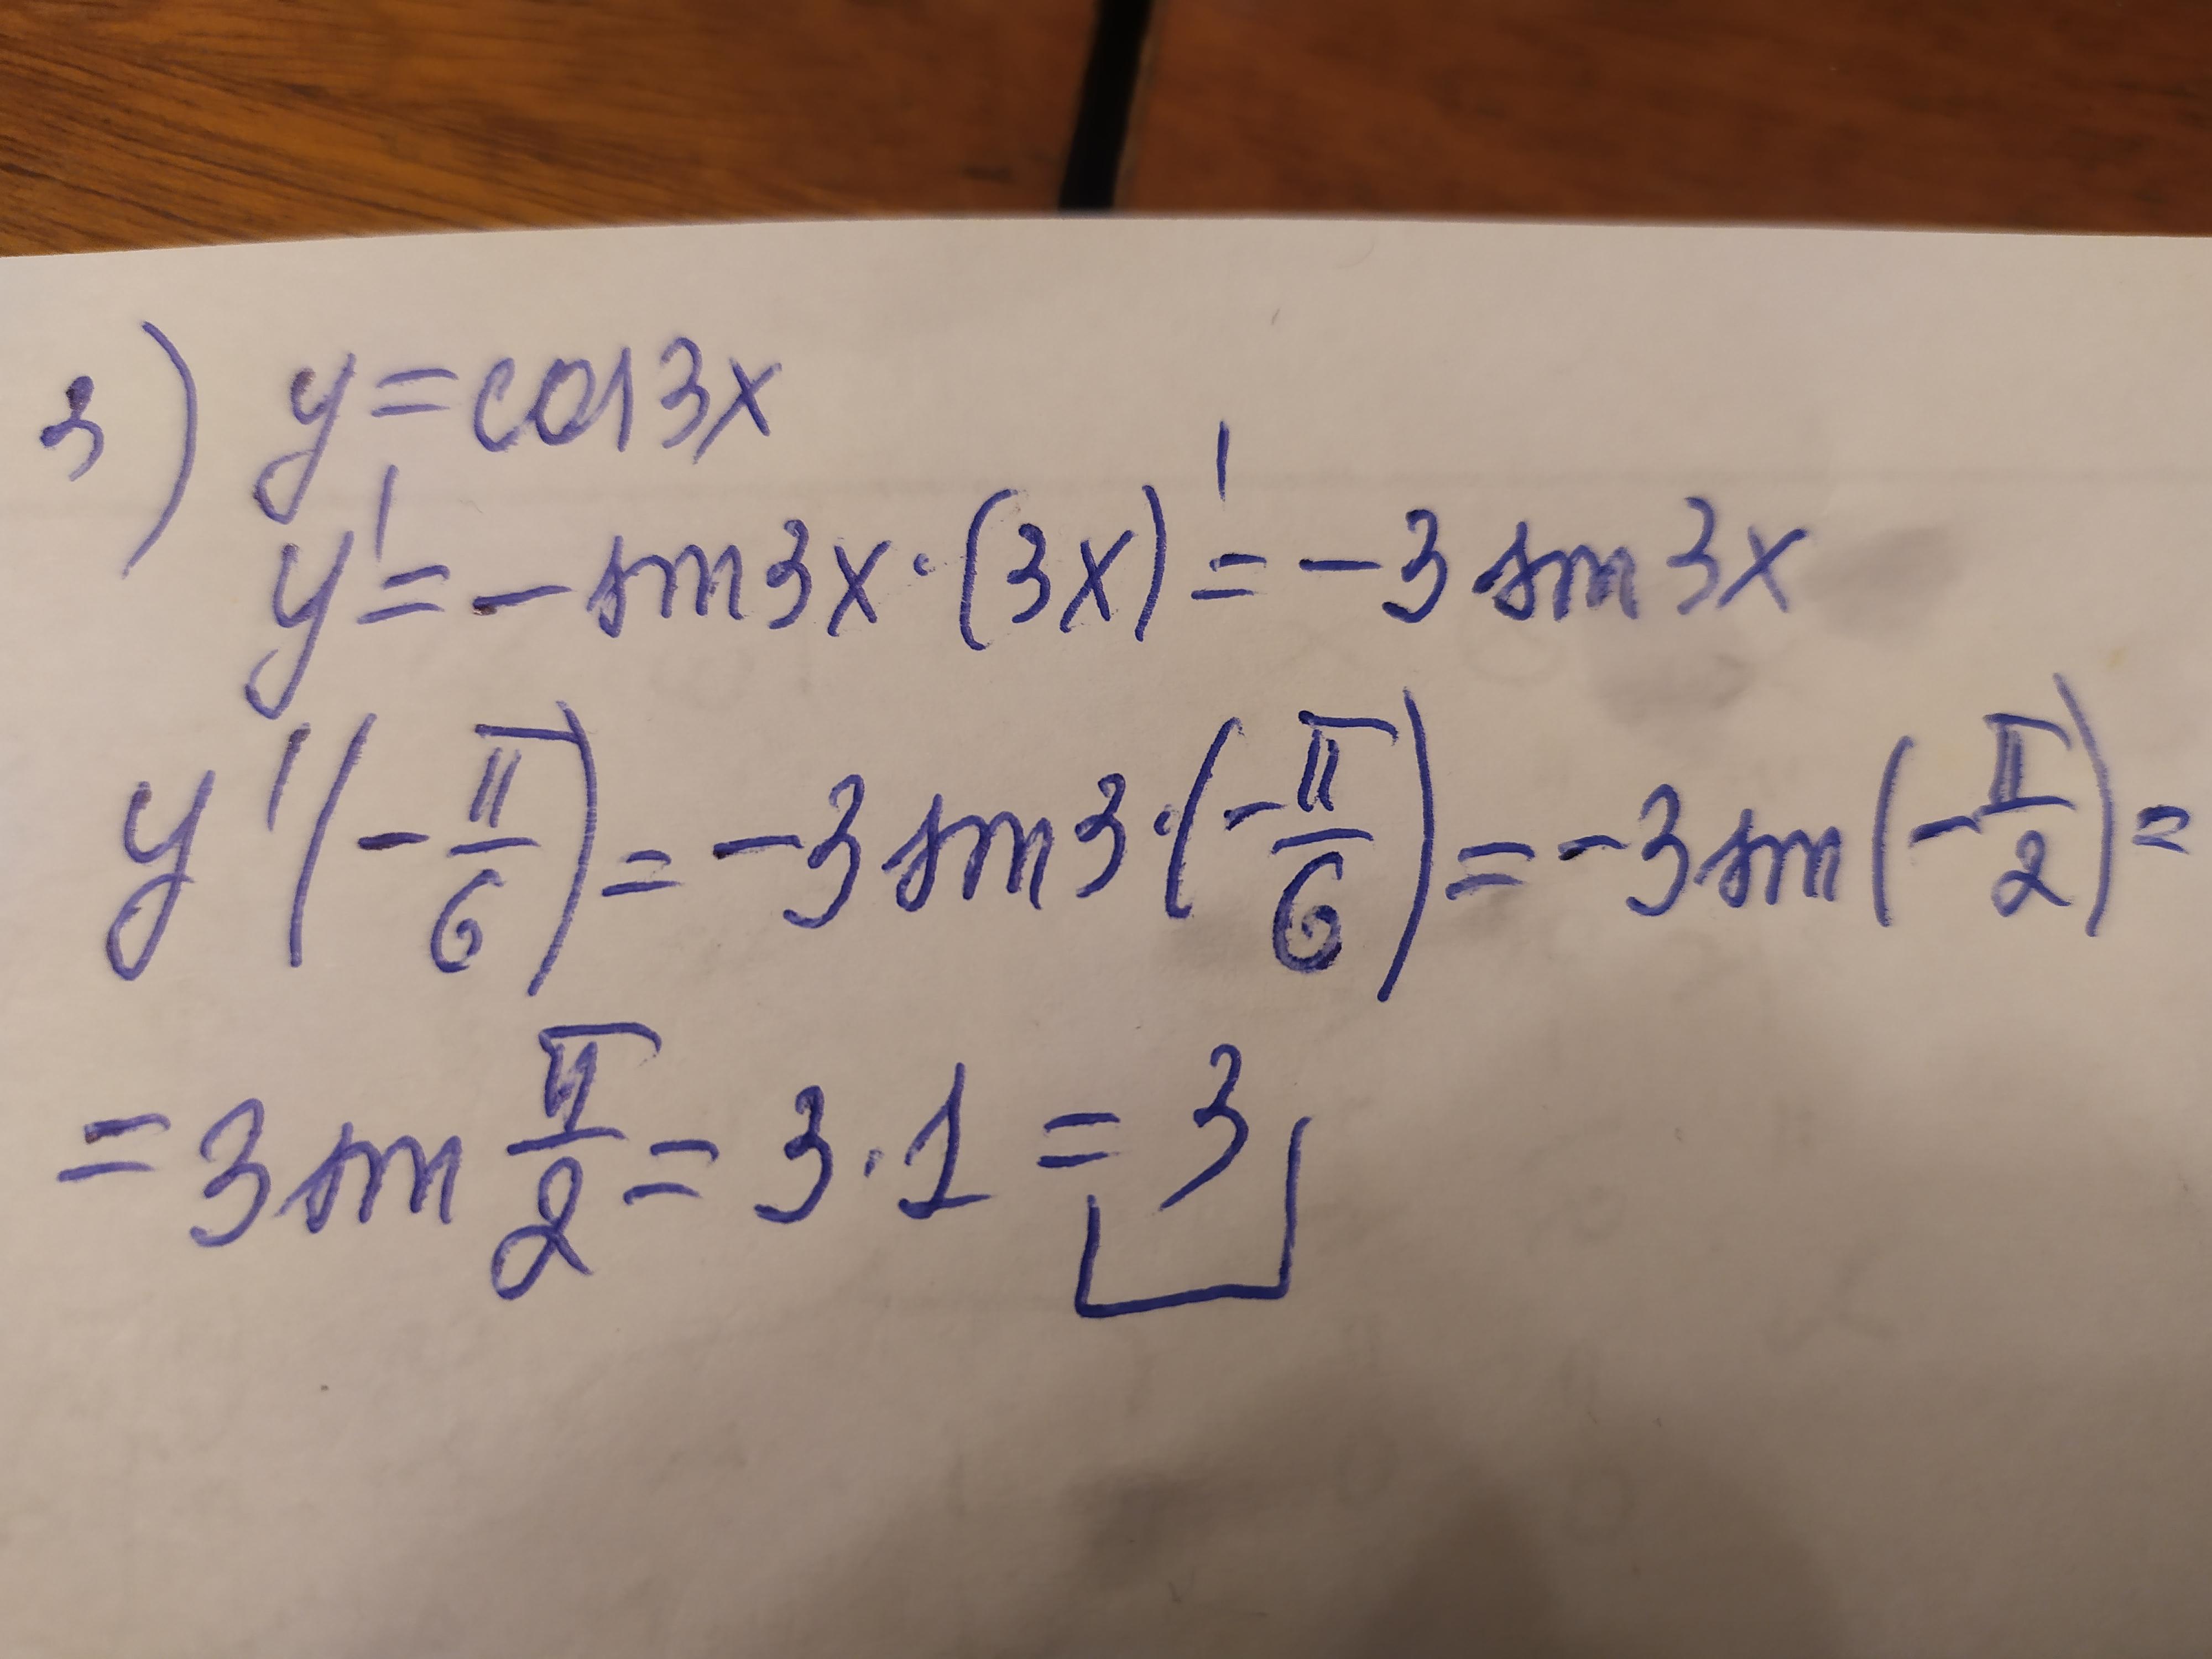 3) y = cos 3x
y' = - sin 3x · (3x)' = - 3 sin 3x
y'(-π/6) = -3 sin 3 · (-π/6) = -3 sin (-π/2) =
= 3 sin π/2 = 3 · 1 = 3